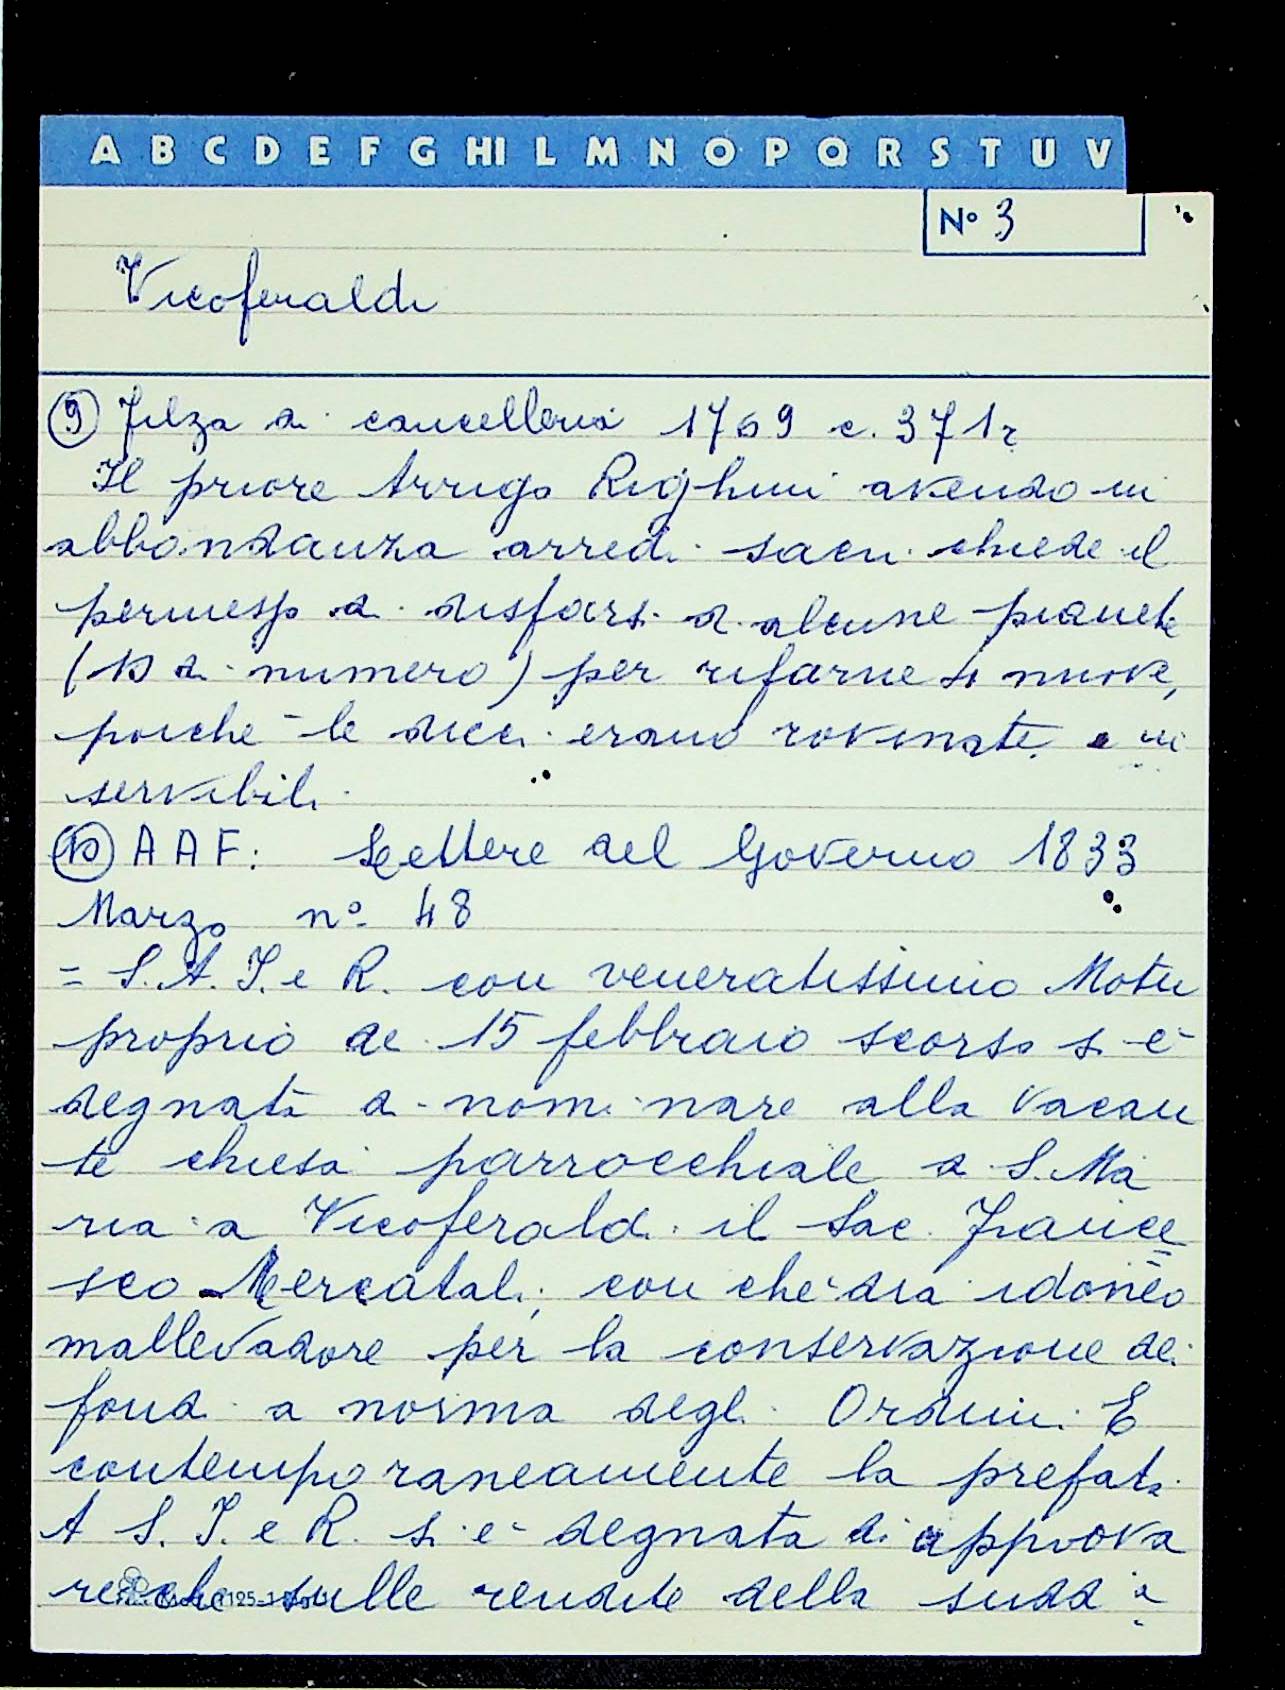 A B C D E F G HI L M N O P Q R S T U V
No 3
Vicoferaldi
9 Filza di cancelleria 1769 c. 371r
Il priore Arrigo Righini avendo in
abbondanza arredi sacri chiede il
permesso di disfarsi di alcune pianete
(10 di numero) per rifarne 4 nuove,
poiche le dieci erano rovinate e in
servibili
10 AAF: Lettere del Governo 1833
Marzo no 48
= S.A.I. e R. con veneratissimo Motu
proprio de 15 febbraio scorso si è
degnata di nominare alla vacan
te chiesa parrocchiale di S. Ma
ria a Vicoferaldi il Sac. France
sco Mercatali, con che dia idoneo
mallevadore per la conservazione dei
fondi a norma degli Ordini. E
contemporaneamente la prefata
A S. I. e R. si è degnata di approva
re che sulle rendite della sudd a